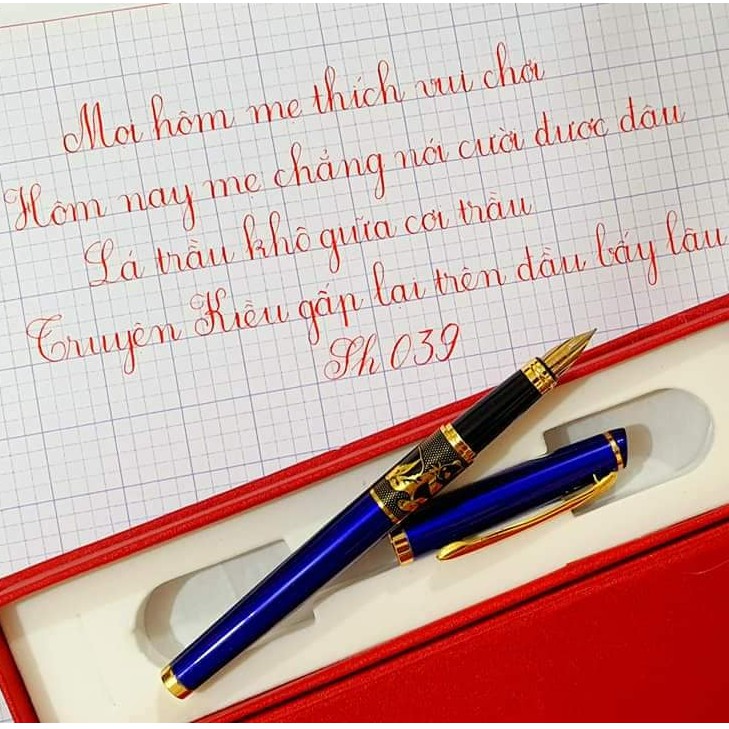 Mọi hôm mẹ thích vui chơi
Hôm nay mẹ chẳng nói cười được đâu
Lá trầu khô giữa cơi trầu
Truyện Kiều gấp lại trên đầu bấy lâu
Sh 039